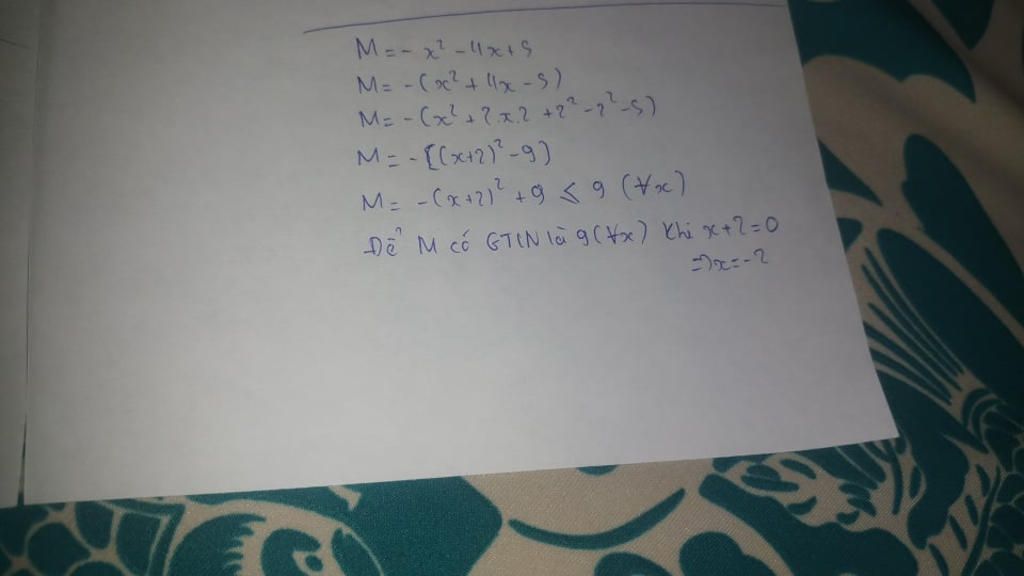 M = - x² - 4x + 5
M = - (x² + 4x - 5)
M = - (x² + 2.x.2 + 2² - 2² - 5)
M = - [(x+2)² - 9)
M = - (x+2)² + 9 ≤ 9 (∀x)
Để M có GTLN là 9 (∀x) khi x+2=0
⇒ x = -2